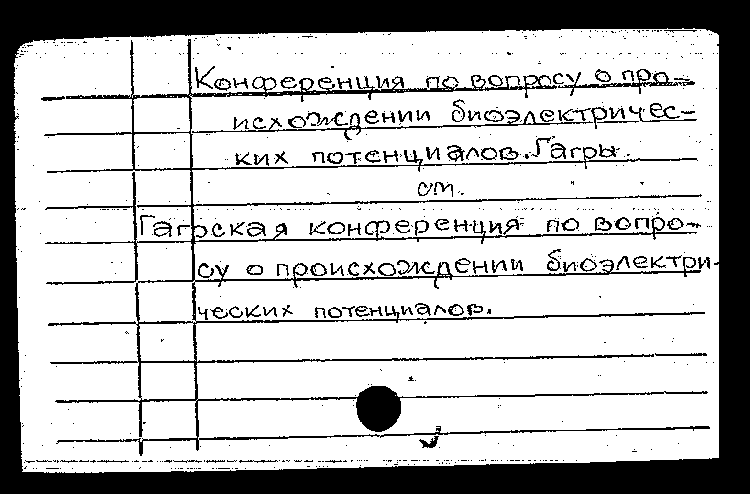 Конференция по вопросу о про-
исхождении биоэлектричес-
ких потенциалов. Гагры.
см.
Гагрская конференция по вопро-
су о происхождении биоэлектри-
ческих потенциалов.